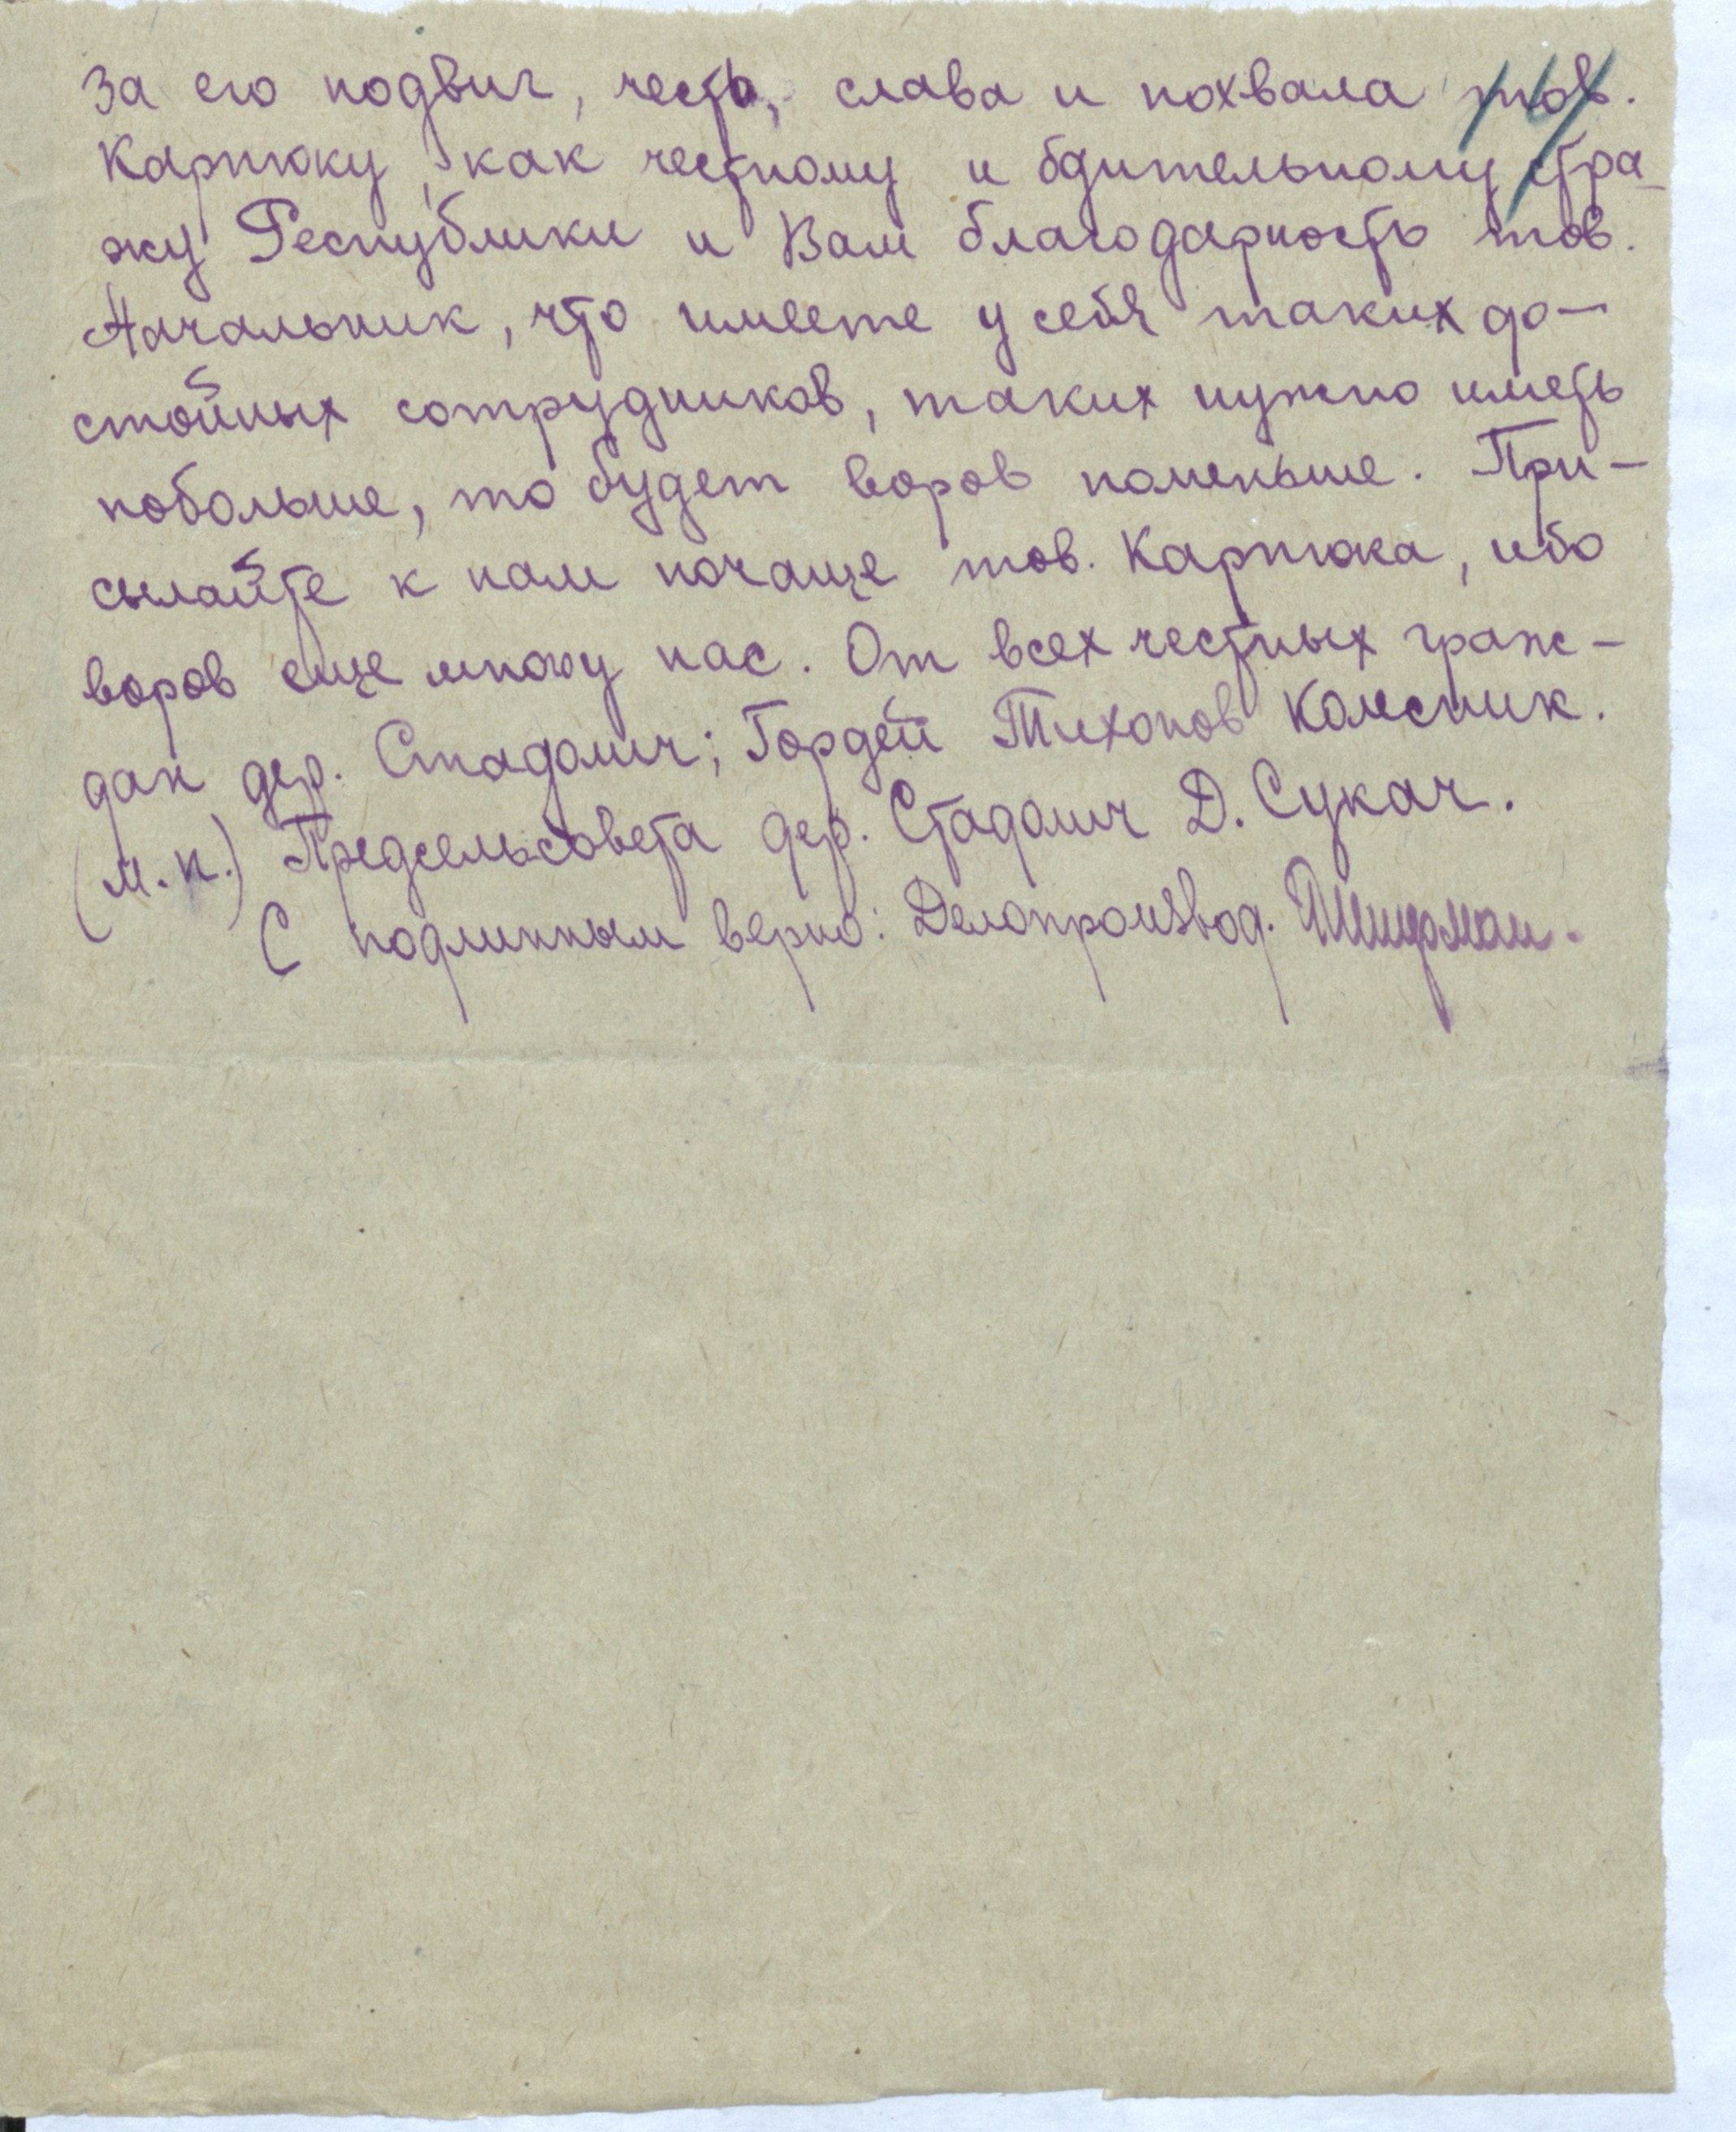 За его подвиг, честь, слава и похвала тов.
Карпюку, как честному и бдительному стра-
жу Республики и Вам благодарность тов.
Начальник, что имеете у себя таких до-
стойных сотрудников, таких нужно иметь
побольше, то будет воров поменьше. При-
сылайте к нам почаще тов. Карпюка, ибо
воров еще много у нас. От всех честных граж-
дан дер. Стадолич; Гордей Тихонов
(м.п.) Предсельсовета дер. Стадолич Д. Сукач.
С подлинным верно: Делопроизвод.